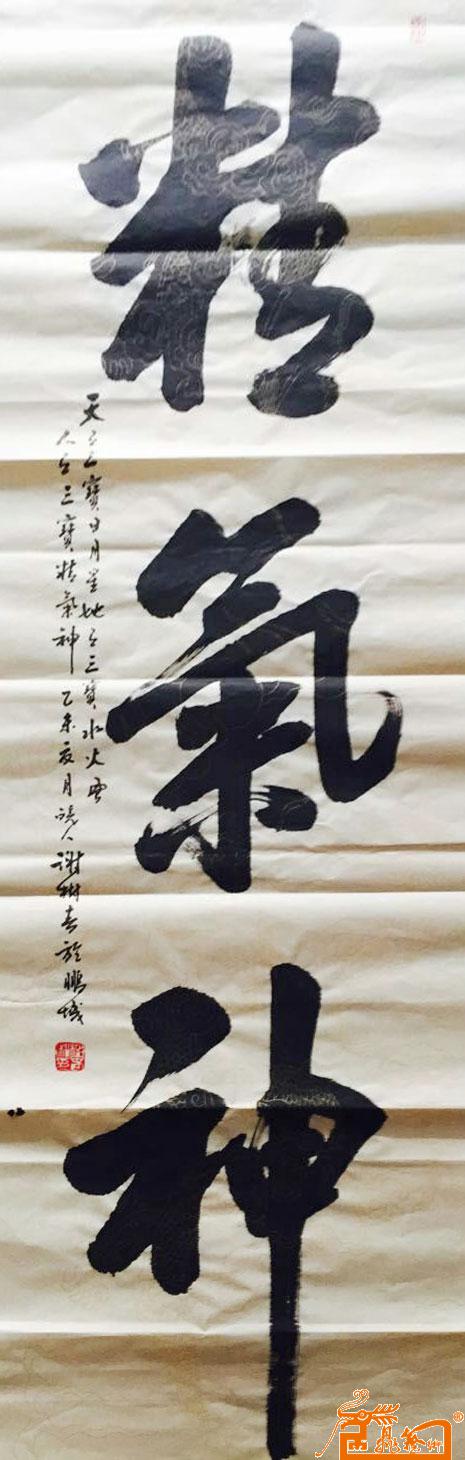 精氣神
天之三寶日月星地之三寶水火風
人之三寶精氣神乙未夏月 謝樹春於鵬城